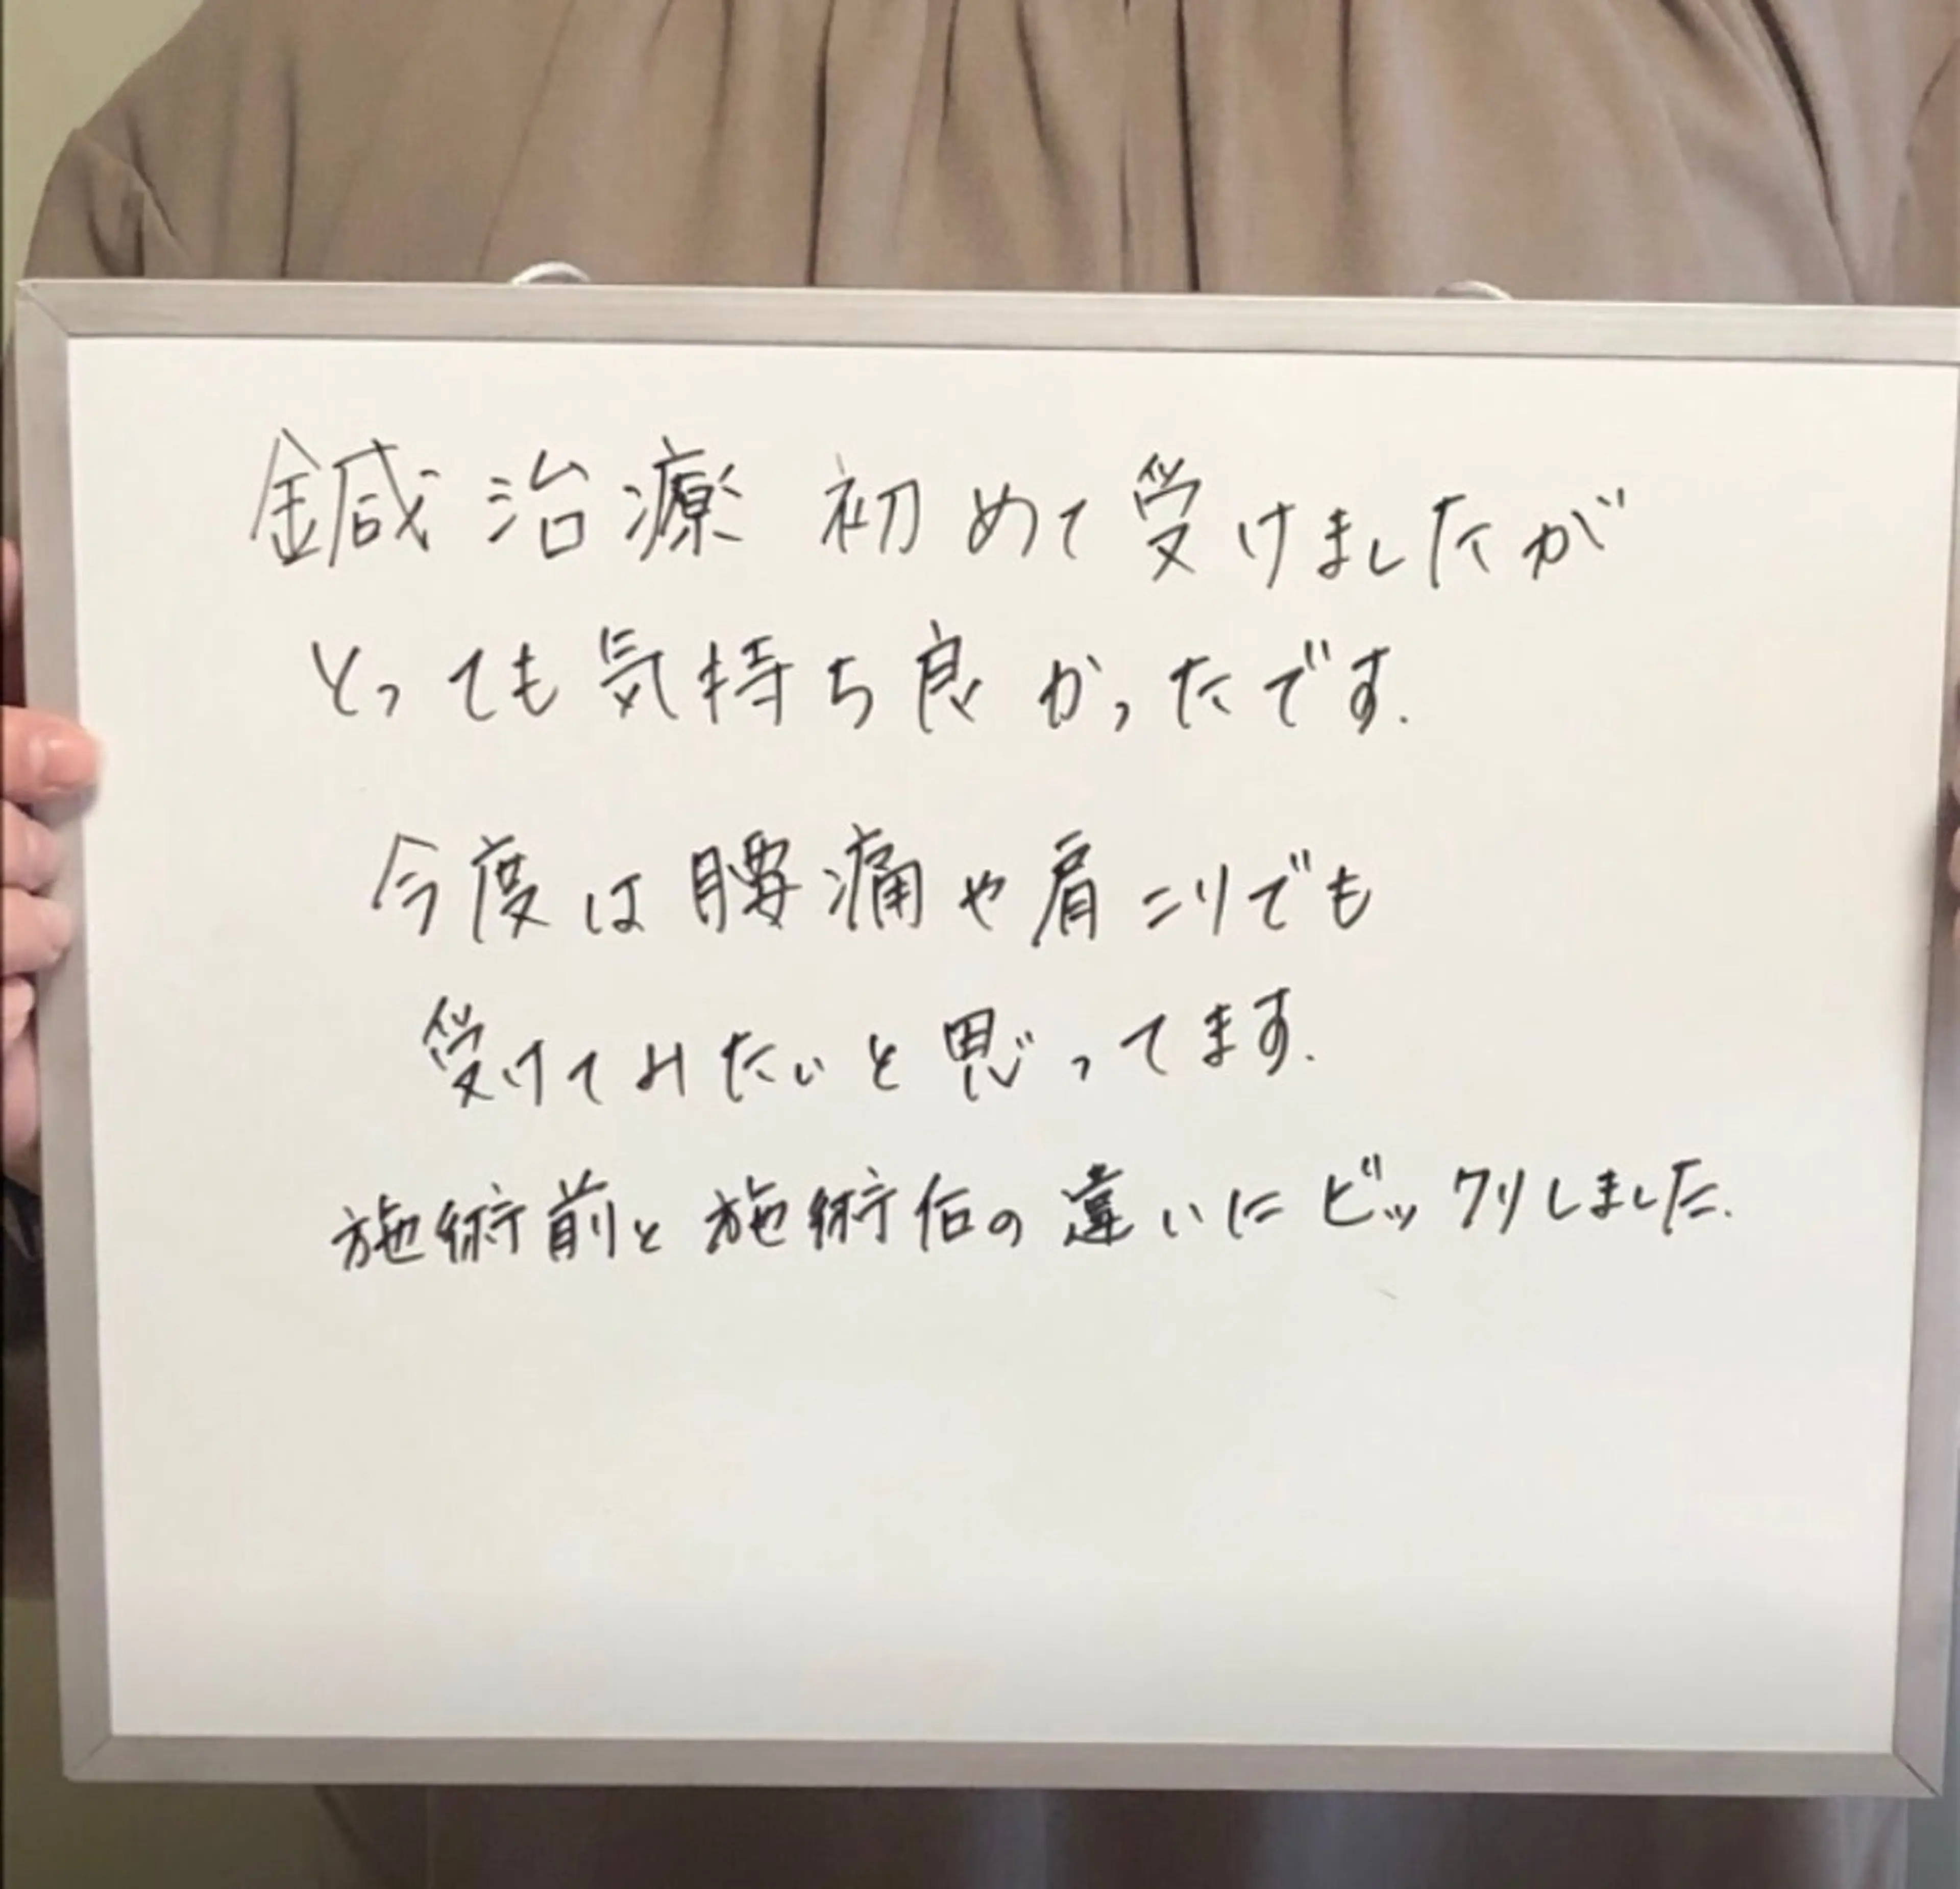 鍼治療 初めて受けましたが
とっても気持ち良かったです.
今度は腰痛や肩こりでも
受けてみたいと思ってます.
施術前と施術后の違いにビックリしました.